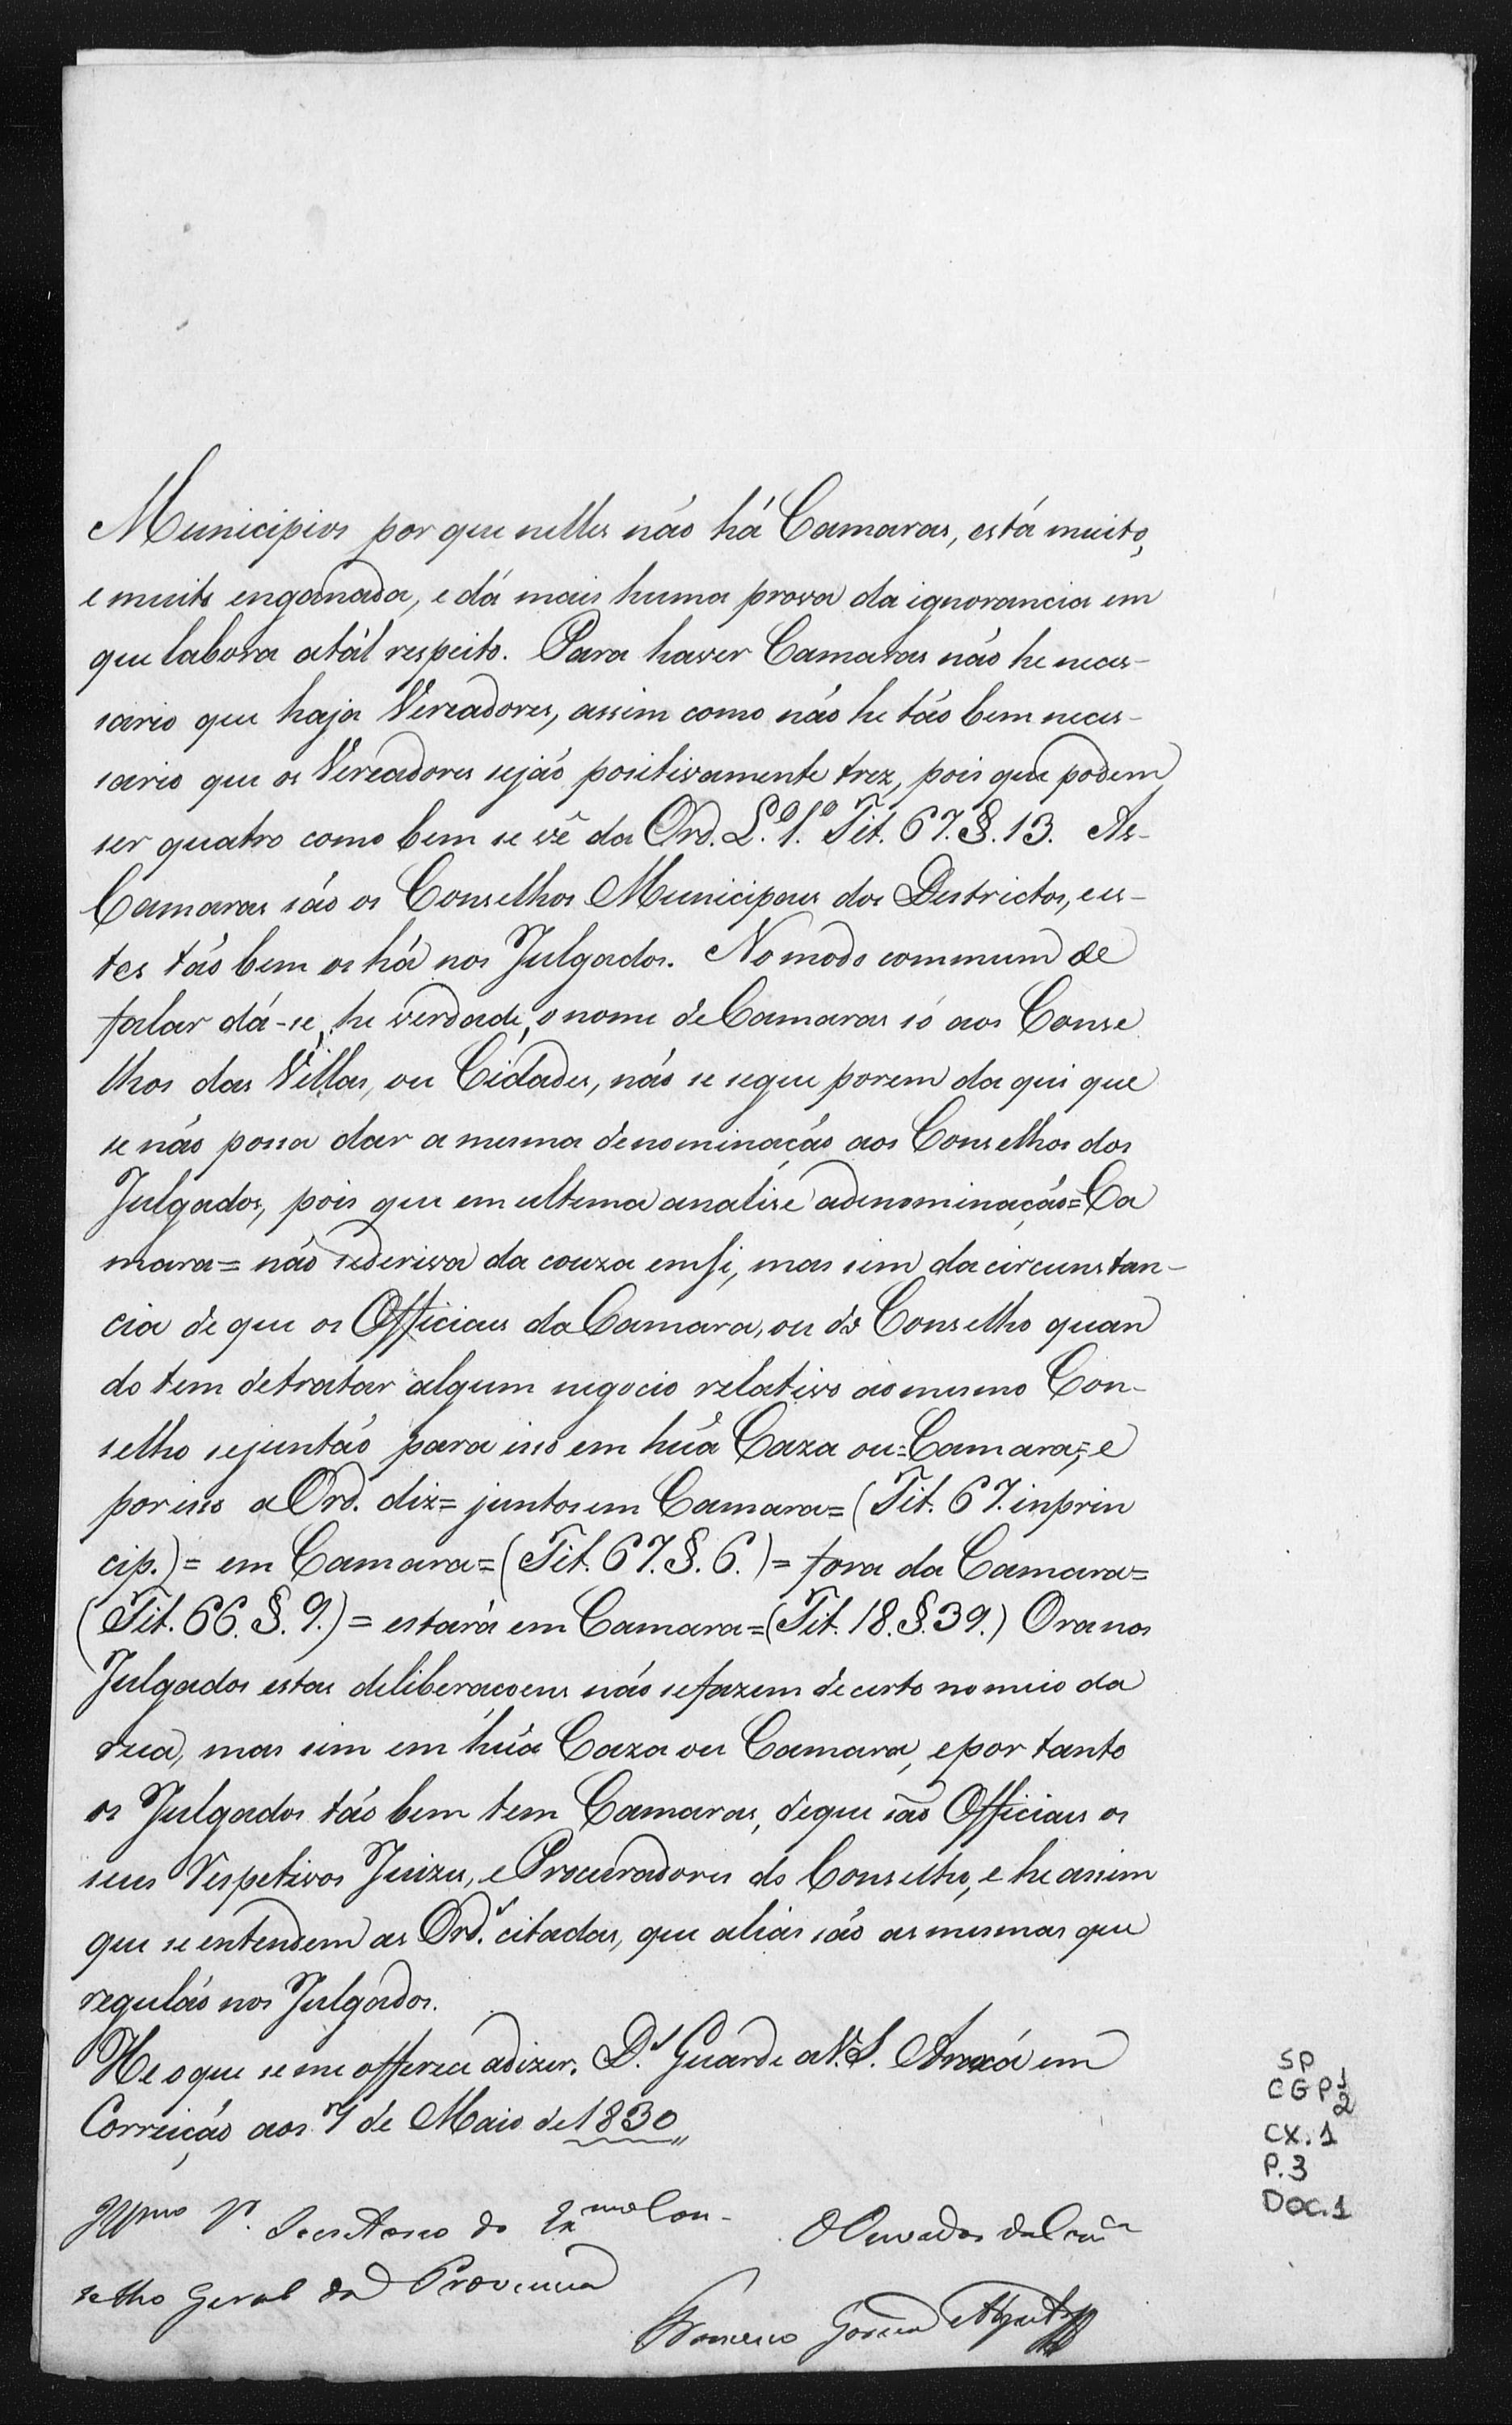 Municipios por que nelles não há Camaras, está muito,
e muito enganada, e dá mais huma prova da ignorancia em
que labora atál respeito. Para haver Camaras não he neces-
sario que haja Vereadores, assim como não he tão bem neces-
sario que os Vereadores sejão positivamente trez, pois que podem
ser quatro como bem se vê da Ord. L.º 1.º Tit. 67. §. 13. As-
Camaras são os Conselhos Municipaes dos Destrictos, es-
tes tão bem os há nos Julgados. No modo commum de
falar dá-se, he verdade, o nome de Camaras só aos Conse
lhos das Villas, ou Cidades, não se segue porem da qui que
se não possa dar a mesma denominação aos Conselhos dos
Julgados, pois que em ultima analise adenominação=Ca
mara= não sederiva da couza emsi, mas sim da circunstan-
cia de que os Officiaes da Camara, ou do Conselho quan
do tem detratar algum negocio relativo ao mesmo Con-
selho sejuntão para isso em hũa Caza ou=Camara;=e
porisso a Ord. diz= juntos em Camara= (Tit. 67. inprin
cip.)= em Camara=(Tit. 67. §. 6.)= fora da Camara=
(Tit. 66. §. 9.)= estará em Camara=(Tit. 18. §. 39.) Ora nos
Julgados estas deliberaçoens não sefazem decerto no meio da
rua, mas sim em hũa Caza ou Camara, epor tanto
os Julgados tão bem tem Camaras, deque são Officiaes os
seus Respetivos Juizes, e Procuradores do Conselho, e he assim
que se entendem as Ord.s citadas, que alias são as mesmas que
regulão nos Julgados.
He oque se me offerece adizer. D.s Guarde aV.S. Araxá em
Correição aos 7 de Maio de 1830
Illmo Sr. Secretario do Exmo Con-
selho Geral da Provincia
O Ouvidor da Com.ca
SP
CGP 1
2
CX. 1
P. 3
DOC. 1